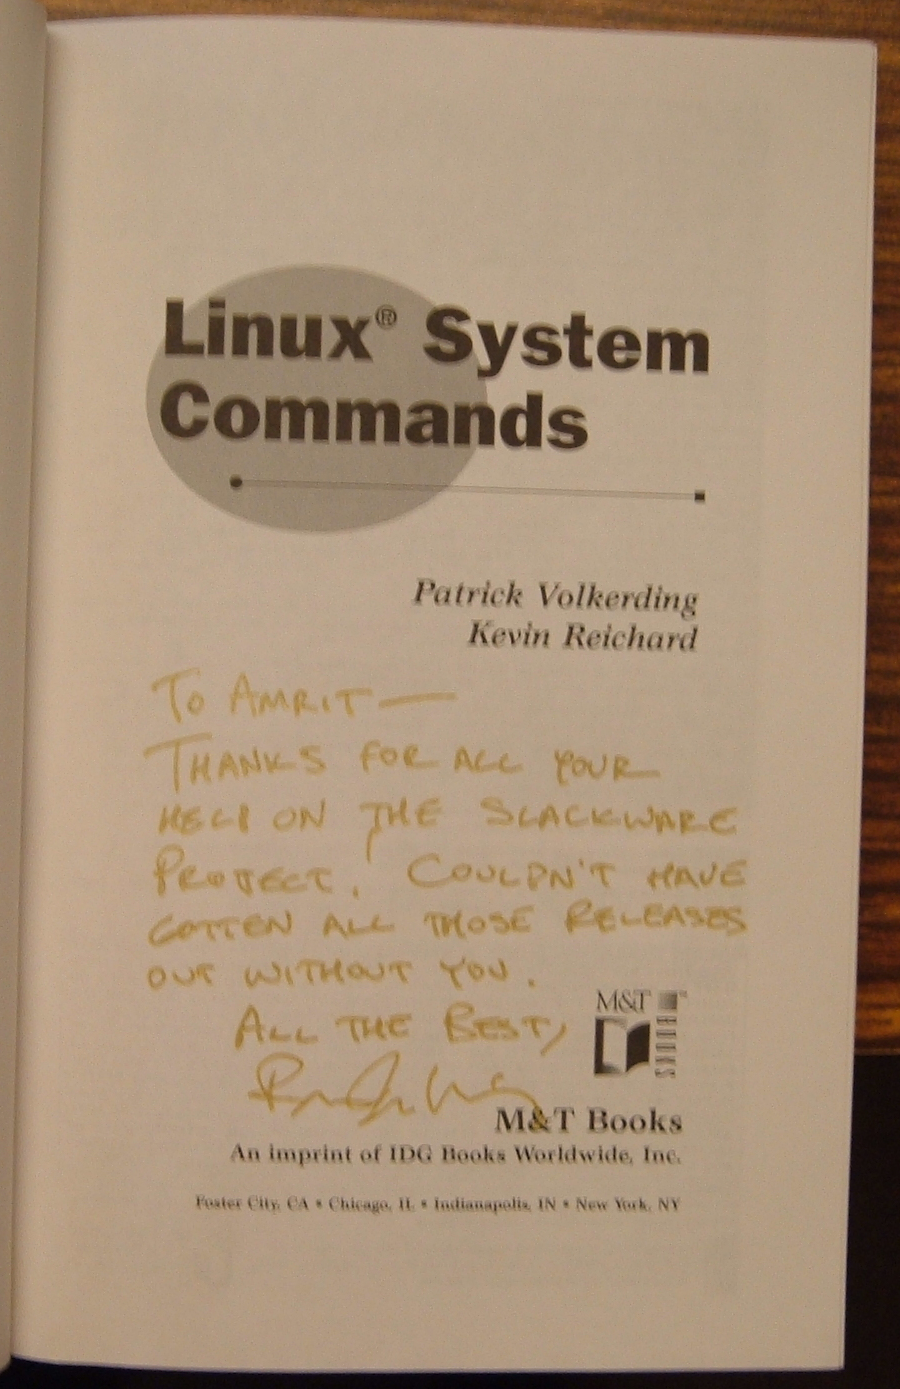 Linux® System
Commands
Patrick Volkerding
Kevin Reichard
To AMRIT—
THANKS FOR ALL YOUR
HELP ON THE SLACKWARE
PROJECT! COULDN'T HAVE
GOTTEN ALL THOSE RELEASES
OUT WITHOUT YOU.
ALL THE BEST,
M&T
BOOKS
M&T Books
An imprint of IDG Books Worldwide, Inc.
Foster City, CA • Chicago, IL • Indianapolis, IN • New York, NY